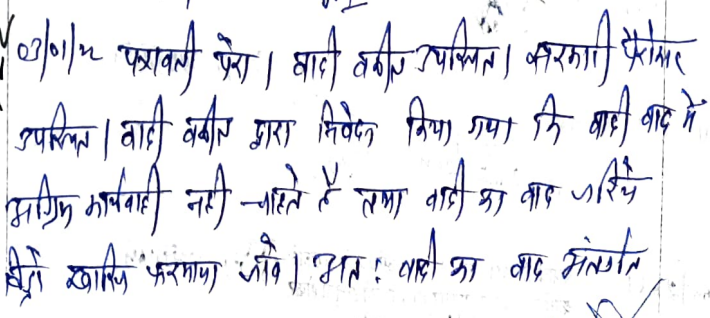 03/01/22 पत्रावली पेश। वादी वकील उपस्थित। सरकारी पैरोकार
उपस्थित। वादी वकील द्वारा निवेदन किया गया कि वादी वाद में
अग्रिम कार्यवाही नहीं चाहते है तथा वादी का वाद जरिये
विड्रो खारिज फरमाया जावे। अतः वादी का वाद अंतर्गत